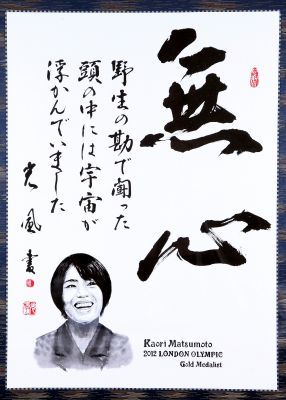 無心
野生の勘で闘った
頭の中には宇宙が
浮かんでいました
光風書
Kaori Matsumoto
2012 LONDON OLYMPIC
Gold Medalist